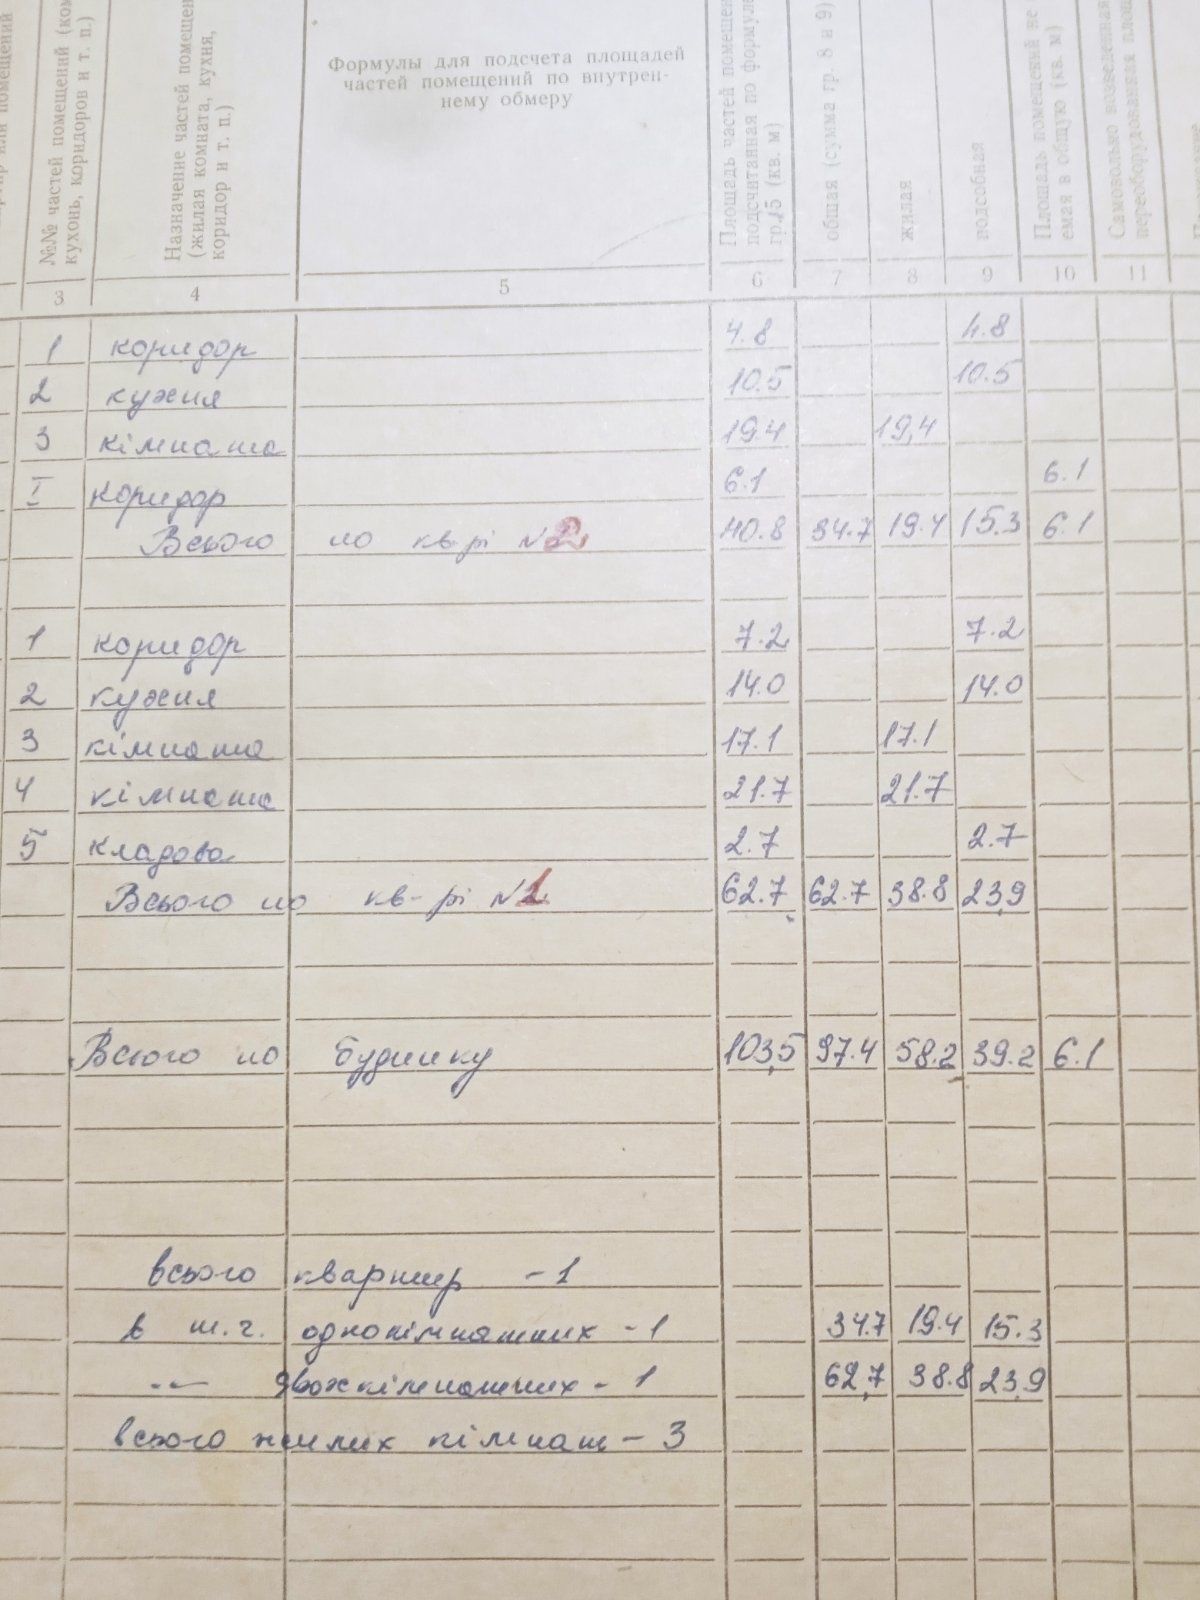 №№ частей помещений (ком
кухонь, коридоров и т. п.)
Назначение частей помещен
(жилая комната, кухня,
коридор и т. п.)
Формулы для подсчета площадей
частей помещений по внутрен-
нему обмеру
Площадь частей помещен
подсчитанная по формуле
гр. 5 (кв. м)
общая (сумма гр. 8 и 9)
жилая
подсобная
Площадь помещений не
емая в общую (кв. м)
Самовольно возведенная
переоборудования площ
3 4 5 6 7 8 9 10 11
1 коридор 4.8 4.8
2 кухня 10.5 10.5
3 кімната 19.4 19,4
I коридор 6.1 6.1
Всього по кв-рі №2 40.8 34.7 19.4 15.3 6.1
1 коридор 7.2 7.2
2 кухня 14.0 14.0
3 кімната 17.1 17.1
4 кімната 21.7 21.7
5 кладова 2.7 2.7
Всього по кв-рі №1 62.7 62.7 38.8 23,9
Всього по будинку 103,5 97.4 58.2 39.2 6.1
всього квартир - 1
в т.ч. однокімнатних - 1 34.7 19.4 15.3
-"- двохкімнатних - 1 62,7 38.8 23,9
всього жилих кімнат - 3